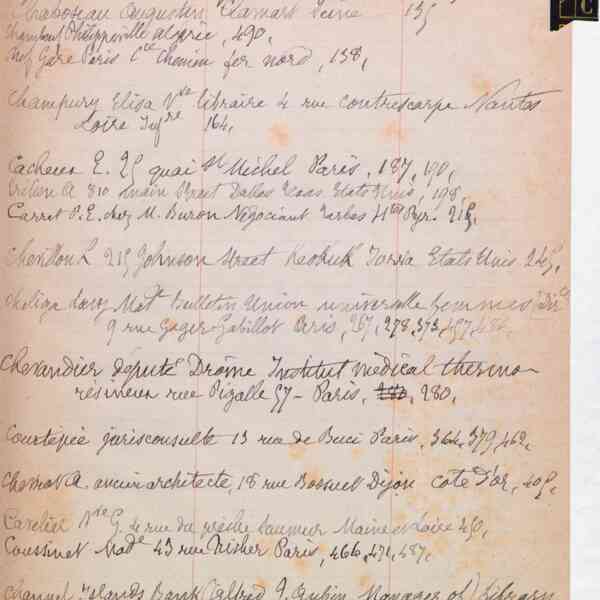 Chaboseau Augustin Clamart Seine 135
Chambout Philippeville Algérie, 490,
Chef Gare Paris Cie Chemin fer nord, 138,
Champury Elisa Vve libraire 4 rue contrescarpe Nantes
Loire Infre 164,
Cacheux E. 25 quai St Michel Paris, 187, 190,
310 main Street Dallas Texas Etats Unis, 198,
Carret P.E. chez M. Buron Négociant Tarbes Htes Pyr. 215,
Chevillon L 215 Johnson Street Keokuk Etats Unis 245,
Cheliga Loevy Mme bulletin Union universelle femmes
9 rue Gager-Gabillot Paris, 267, 278, 373, 457, 482,
Chevandier député Drôme Institut médical thermo-
résineux rue Pigalle 57 - Paris, 280,
Courtépée jurisconsulte 13 rue de Buci Paris, 364, 379, 462,
ancien architecte, 18 rue Bossuet Dijon cote d'or, 405,
Cavelier 4 rue du prêche Saumur Maine et Loire 450,
Coussinet Made 43 rue Richer Paris, 466, 471, 487,
Channel Islands Bank (Alfred J. Aubin Manager of) Library